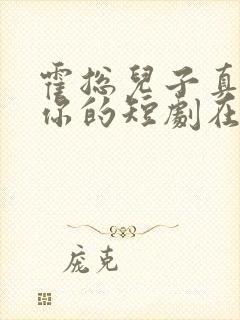 霍总兒子真
你的短劇在
庞克